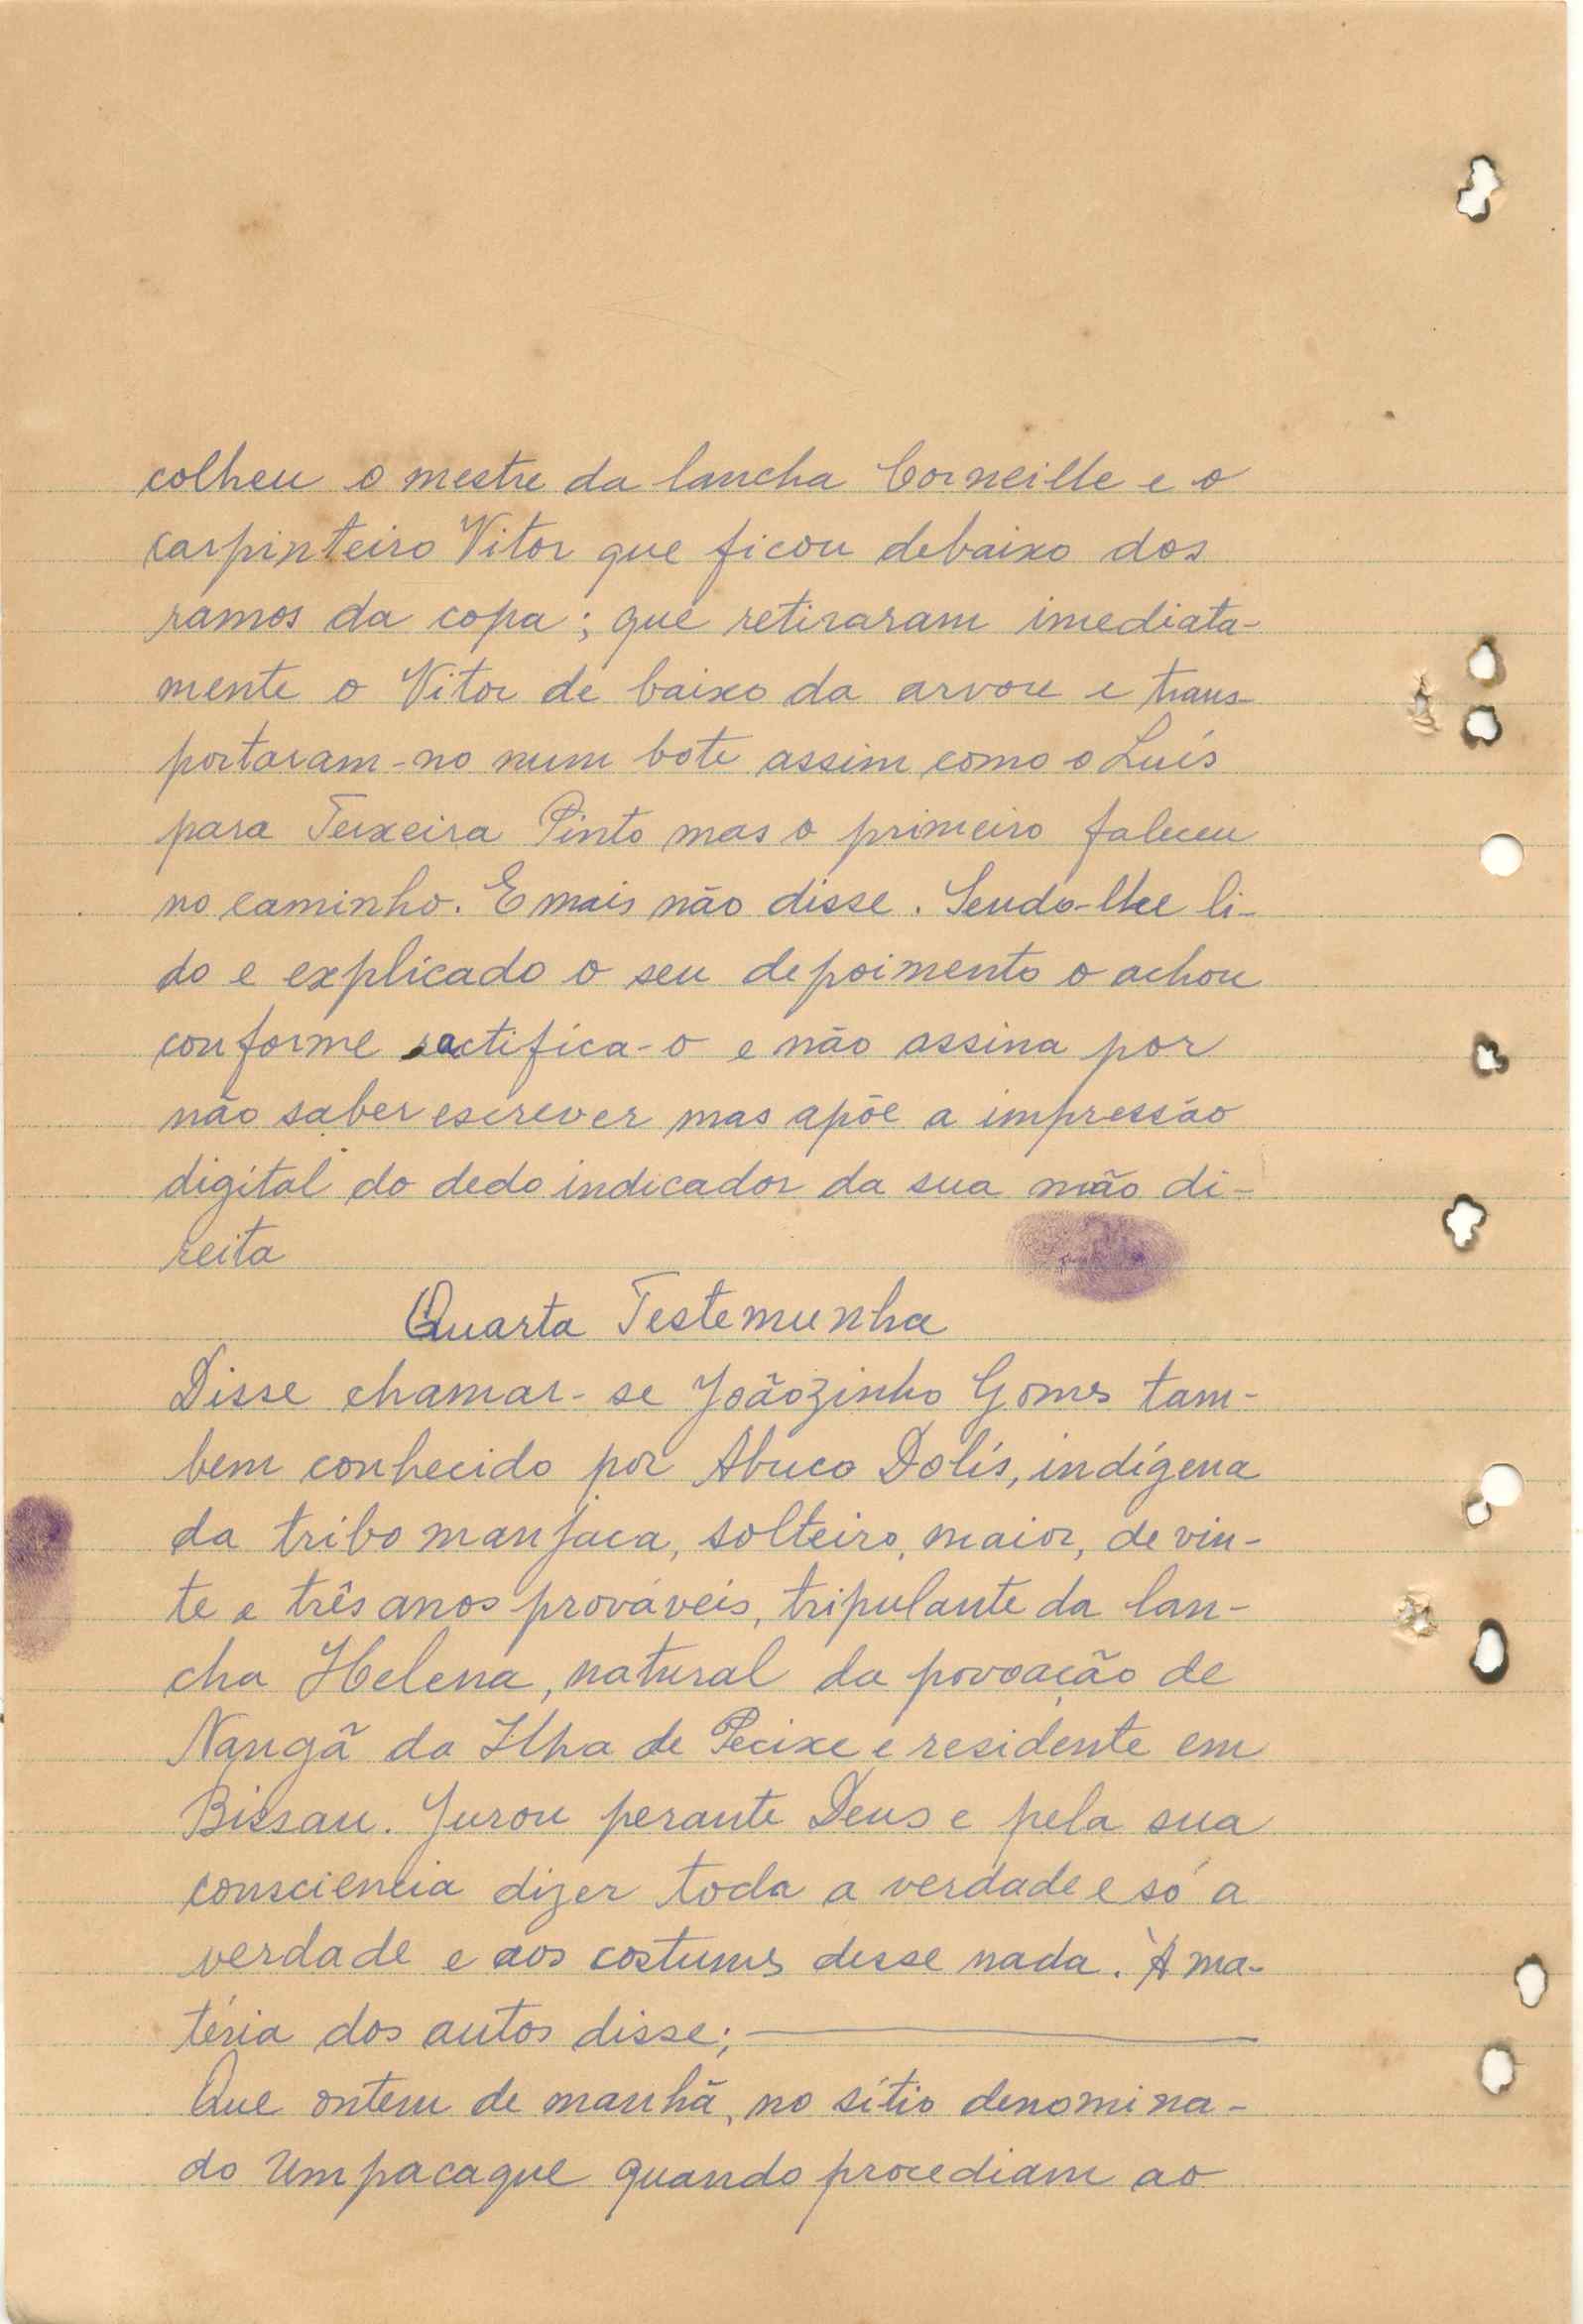 colheu o mestre da lancha Corneille e o
carpinteiro Vitor que ficou debaixo dos
ramos da copa; que retiraram imediata-
mente o Vitor de baixo da arvore e trans-
portaram-no num bote assim como o Luís
para Teixeira Pinto mas o primeiro faleceu
no caminho. E mais não disse. Sendo-lhe li-
do e explicado o seu depoimento o achou
conforme ractifica-o e não assina por
não saber escrever mas apõe a impressão
digital do dedo indicador da sua mão di-
reita
Quarta Testemunha
Disse chamar-se Joãozinho Gomes tam-
bem conhecido por Abuco Dolís, indígena
da tribo manjaca, solteiro, maior, de vin-
te e três anos prováveis, tripulante da lan-
cha Helena, natural da povoação de
Nangã da Ilha de Pecixe e residente em
Bissau. Jurou perante Deus e pela sua
consciencia dizer toda a verdade e só a
verdade e aos costumes desse nada. À ma-
téria dos autos disse;
Que ontem de manhã, no sítio denomina-
do Umpacaque quando procediam ao